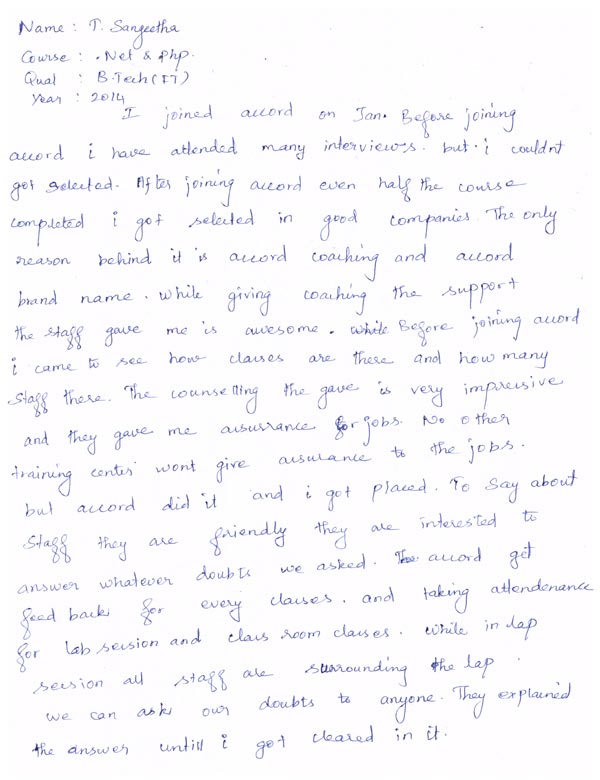 Name : T. Sangeetha
Course : .Net & Php.
Qual : B.Tech(IT)
Year : 2014
I joined accord on Jan. Before joining
accord i have attended many interviews. but i couldnt
got selected. After joining accord even half the course
completed i got selected in good companies. The only
reason behind it is accord coaching and accord
brand name. While giving coaching the support
the staff gave me is awesome. While Before joining accord
i came to see how classes are there and how many
Staff there. The counselling the gave is very impressive
and they gave me assurrance for jobs. No other
training center wont give assurance to the jobs.
but accord did it and i got placed. To Say about
Staff they are friendly they are interested to
answer whatever doubts we asked. The accord get
feed back for every classes. and taking attendenance
for lab session and class room classes. While in lap
session all staff are surrounding the lap.
we can ask our doubts to anyone. They explained
the answer untill i got cleared in it.